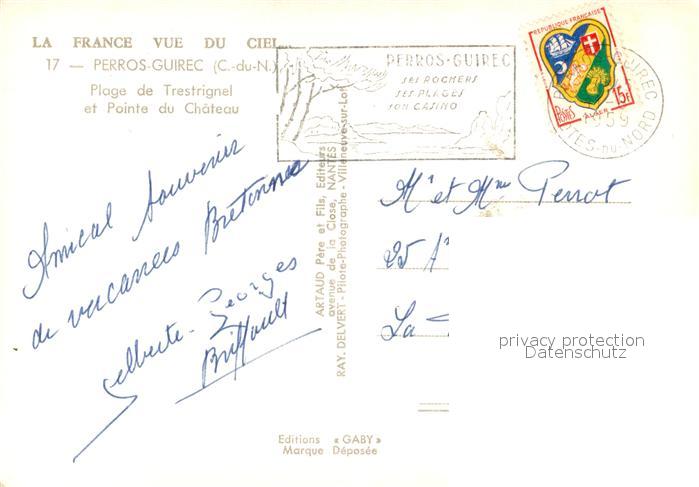 LA FRANCE VUE DU CIEL
17 — PERROS-GUIREC (C.-du-N.)
Plage de Trestrignel
et Pointe du Château
PERROS-GUIREC
SES ROCHERS
SES PLAGES
SON CASINO
REPUBLIQUE FRANÇAISE
POSTES ALGER 15F
GUIREC
1959
CÔTES-DU-NORD
Amical souvenir
de vacances Bretonnes
Georges
Briffault
ARTAUD Père et Fils, Editeurs
avenue de la Close, NANTES
RAY. DELVERT - Pilote-Photographe - Villeneuve-sur-Lot
Mr et Mme Perrot
25 A
La
privacy protection
Datenschutz
Editions « GABY »
Marque Déposée